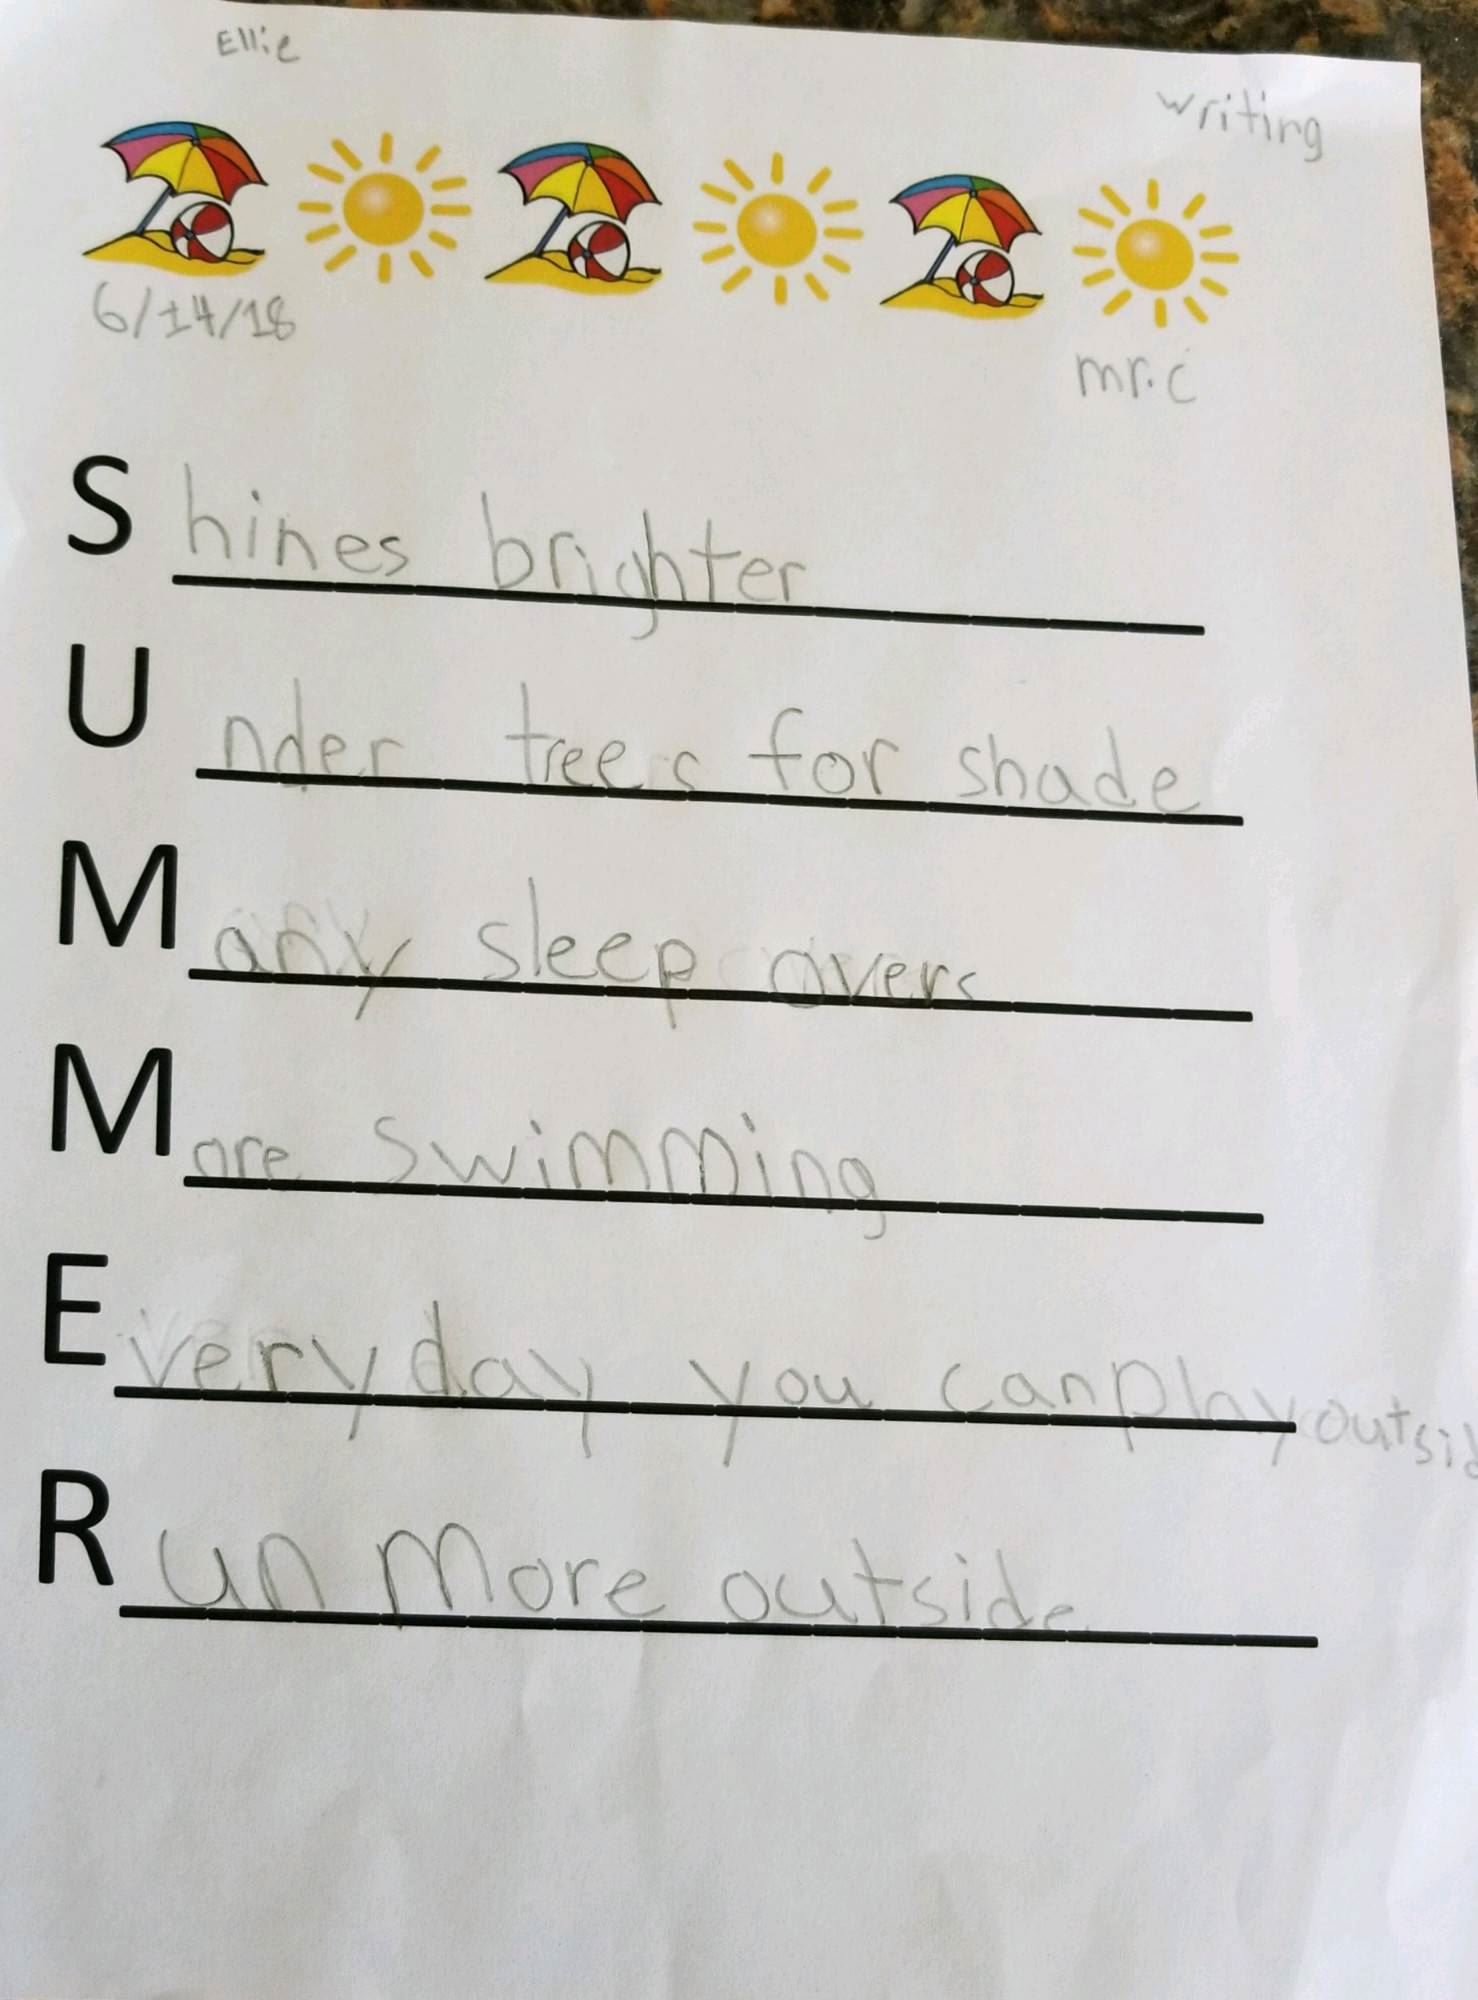 Ellie
writing
6/14/18
mr.c
Shines brighter
Under trees for shade
Many sleep overs
More swimming
Every day you can play outsid
Run more outside